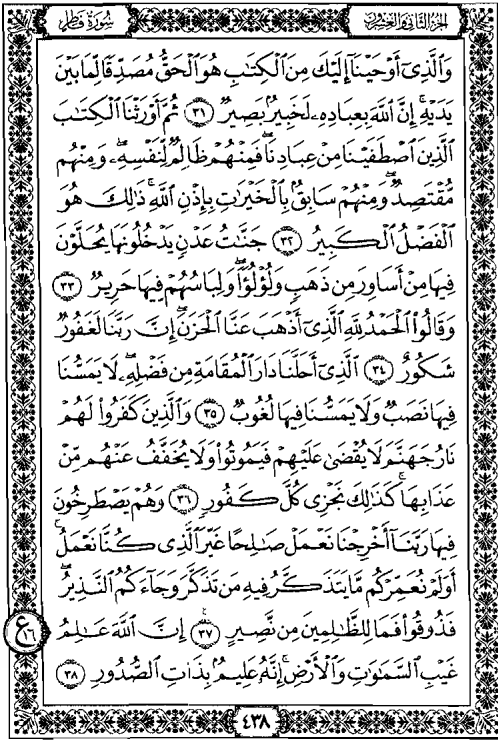 سُورَةُ فَاطِرٍ
الجُزْءُ الثَّانِي وَالعِشْرُونَ
وَالَّذِيٓ أَوْحَيْنَآ إِلَيْكَ مِنَ الْكِتَٰبِ هُوَ الْحَقُّ مُصَدِّقًا لِّمَا بَيْنَ
يَدَيْهِ ۗ إِنَّ اللَّهَ بِعِبَادِهِۦ لَخَبِيرٌۢ بَصِيرٌ ٣١ ثُمَّ أَوْرَثْنَا الْكِتَٰبَ
الَّذِينَ اصْطَفَيْنَا مِنْ عِبَادِنَا ۖ فَمِنْهُمْ ظَالِمٌ لِّنَفْسِهِۦ وَمِنْهُم
مُّقْتَصِدٌ وَمِنْهُمْ سَابِقٌۢ بِالْخَيْرَٰتِ بِإِذْنِ اللَّهِ ۚ ذَٰلِكَ هُوَ
الْفَضْلُ الْكَبِيرُ ٣٢ جَنَّٰتُ عَدْنٍ يَدْخُلُونَهَا يُحَلَّوْنَ
فِيهَا مِنْ أَسَاوِرَ مِن ذَهَبٍ وَلُؤْلُؤًا ۖ وَلِبَاسُهُمْ فِيهَا حَرِيرٌ ٣٣
وَقَالُوا الْحَمْدُ لِلَّهِ الَّذِيٓ أَذْهَبَ عَنَّا الْحَزَنَ ۖ إِنَّ رَبَّنَا لَغَفُورٌ
شَكُورٌ ٣٤ الَّذِيٓ أَحَلَّنَا دَارَ الْمُقَامَةِ مِن فَضْلِهِۦ لَا يَمَسُّنَا
فِيهَا نَصَبٌ وَلَا يَمَسُّنَا فِيهَا لُغُوبٌ ٣٥ وَالَّذِينَ كَفَرُوا لَهُمْ
نَارُ جَهَنَّمَ لَا يُقْضَىٰ عَلَيْهِمْ فَيَمُوتُوا وَلَا يُخَفَّفُ عَنْهُم مِّنْ
عَذَابِهَا ۚ كَذَٰلِكَ نَجْزِي كُلَّ كَفُورٍ ٣٦ وَهُمْ يَصْطَرِخُونَ
فِيهَا رَبَّنَآ أَخْرِجْنَا نَعْمَلْ صَٰلِحًا غَيْرَ الَّذِي كُنَّا نَعْمَلُ ۚ
أَوَلَمْ نُعَمِّرْكُم مَّا يَتَذَكَّرُ فِيهِ مَن تَذَكَّرَ وَجَآءَكُمُ النَّذِيرُ ۖ
فَذُوقُوا فَمَا لِلظَّٰلِمِينَ مِن نَّصِيرٍ ٣٧ إِنَّ اللَّهَ عَٰلِمُ
ع ١٦
غَيْبِ السَّمَٰوَٰتِ وَالْأَرْضِ ۚ إِنَّهُۥ عَلِيمٌۢ بِذَاتِ الصُّدُورِ ٣٨
٤٣٨